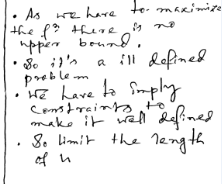 • As we have to maximize
the f? there is no
upper bound.
• So it's a ill defined
problem
• We have to imply
constraints to
make it well defined
• So limit the length
of u